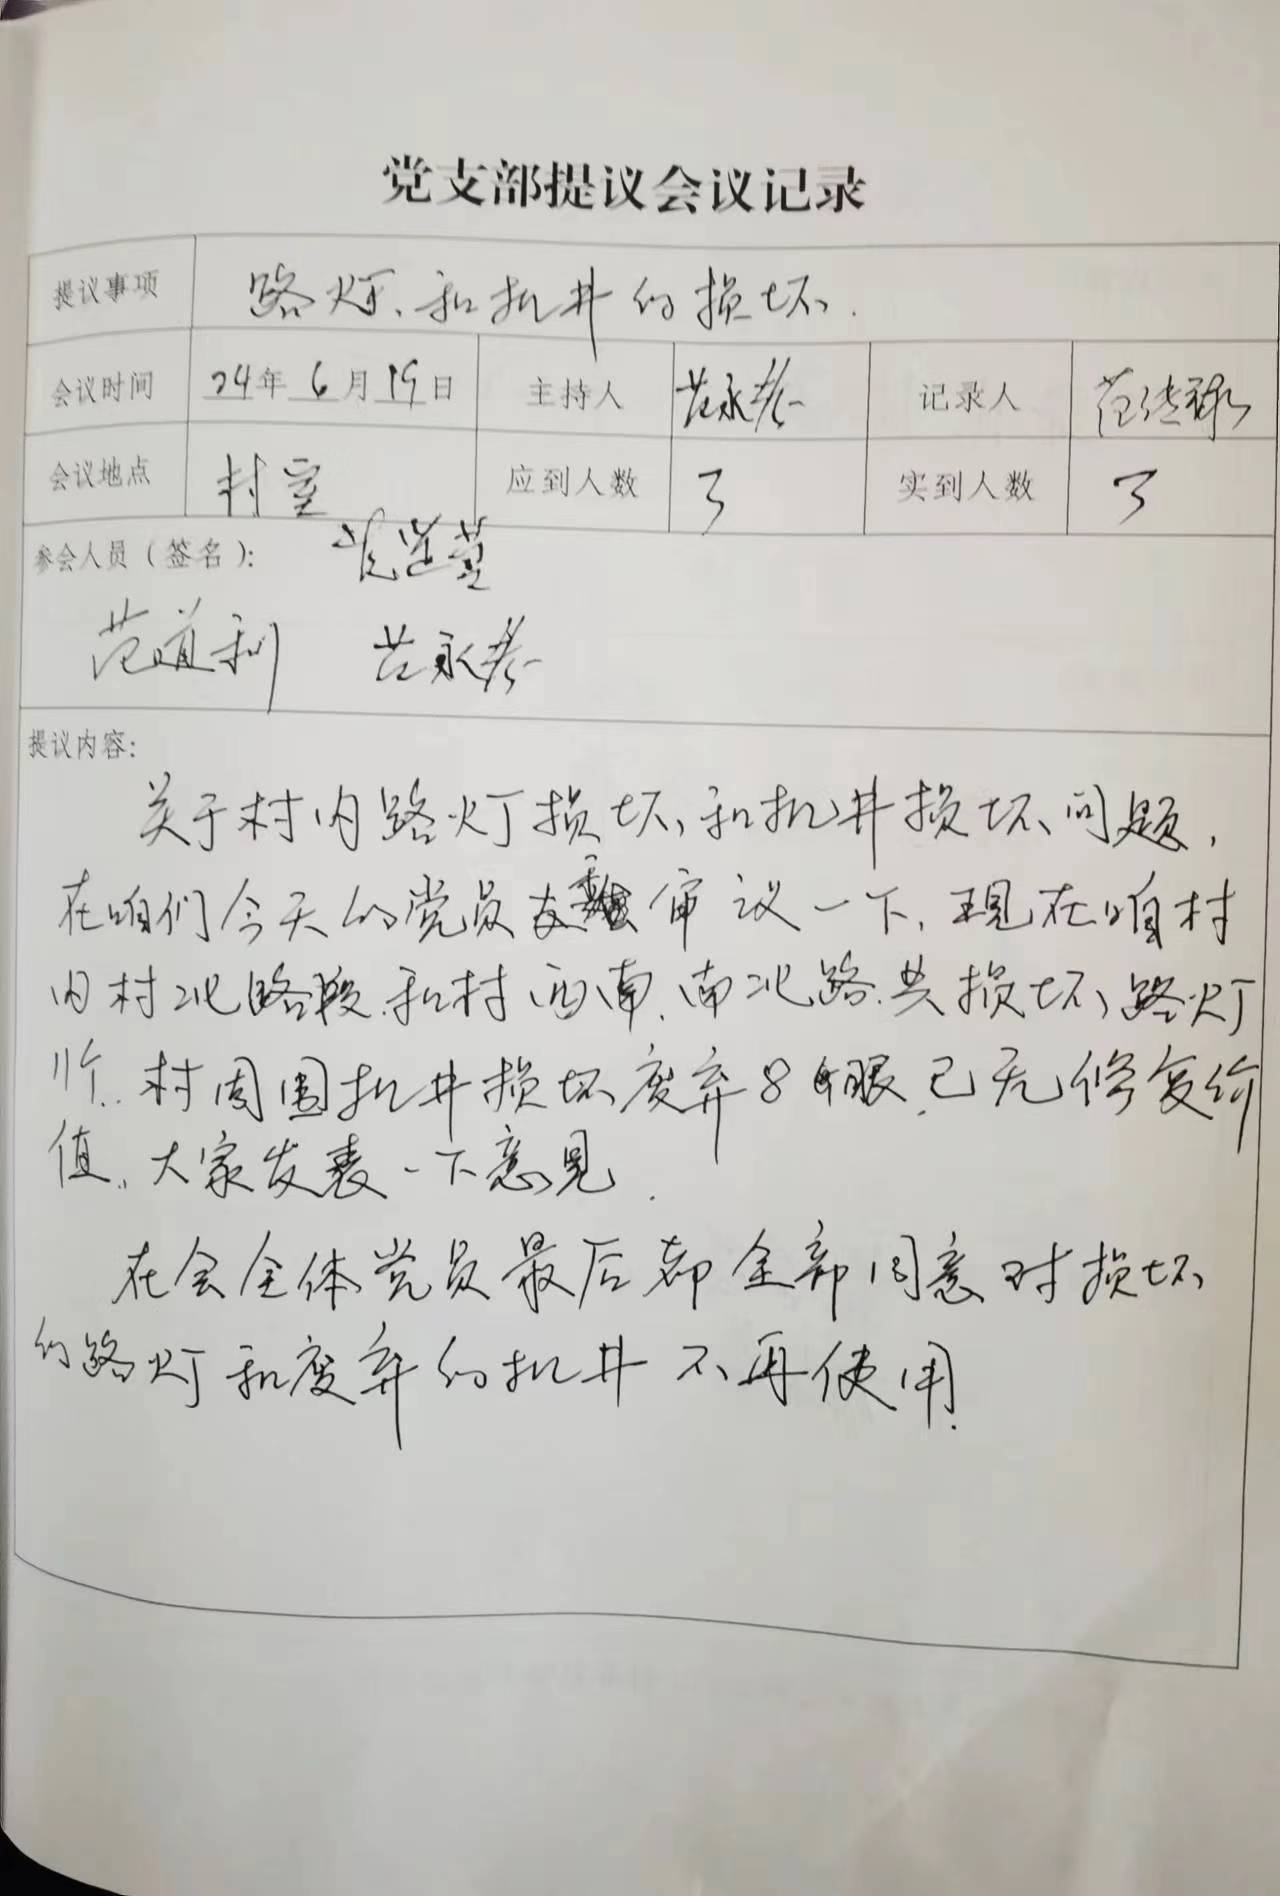 党支部提议会议记录
提议事项 路灯、和机井的损坏.
会议时间 24年 6月19日 主持人 范永岺 记录人
会议地点 村室 应到人数 3 实到人数 3
参会人员（签名）：
范道利
提议内容：
关于村内路灯损坏、和机井损坏、问题，
在咱们今天的党员 审议一下，现在咱村
内村北路段.和村西南、南北路.共损坏、路灯
11个. 村周围机井损坏废弃8眼.已无修复价
值、大家发表一下意见.
在会全体党员最后都全部同意对损坏
的路灯和废弃的机井不再使用.